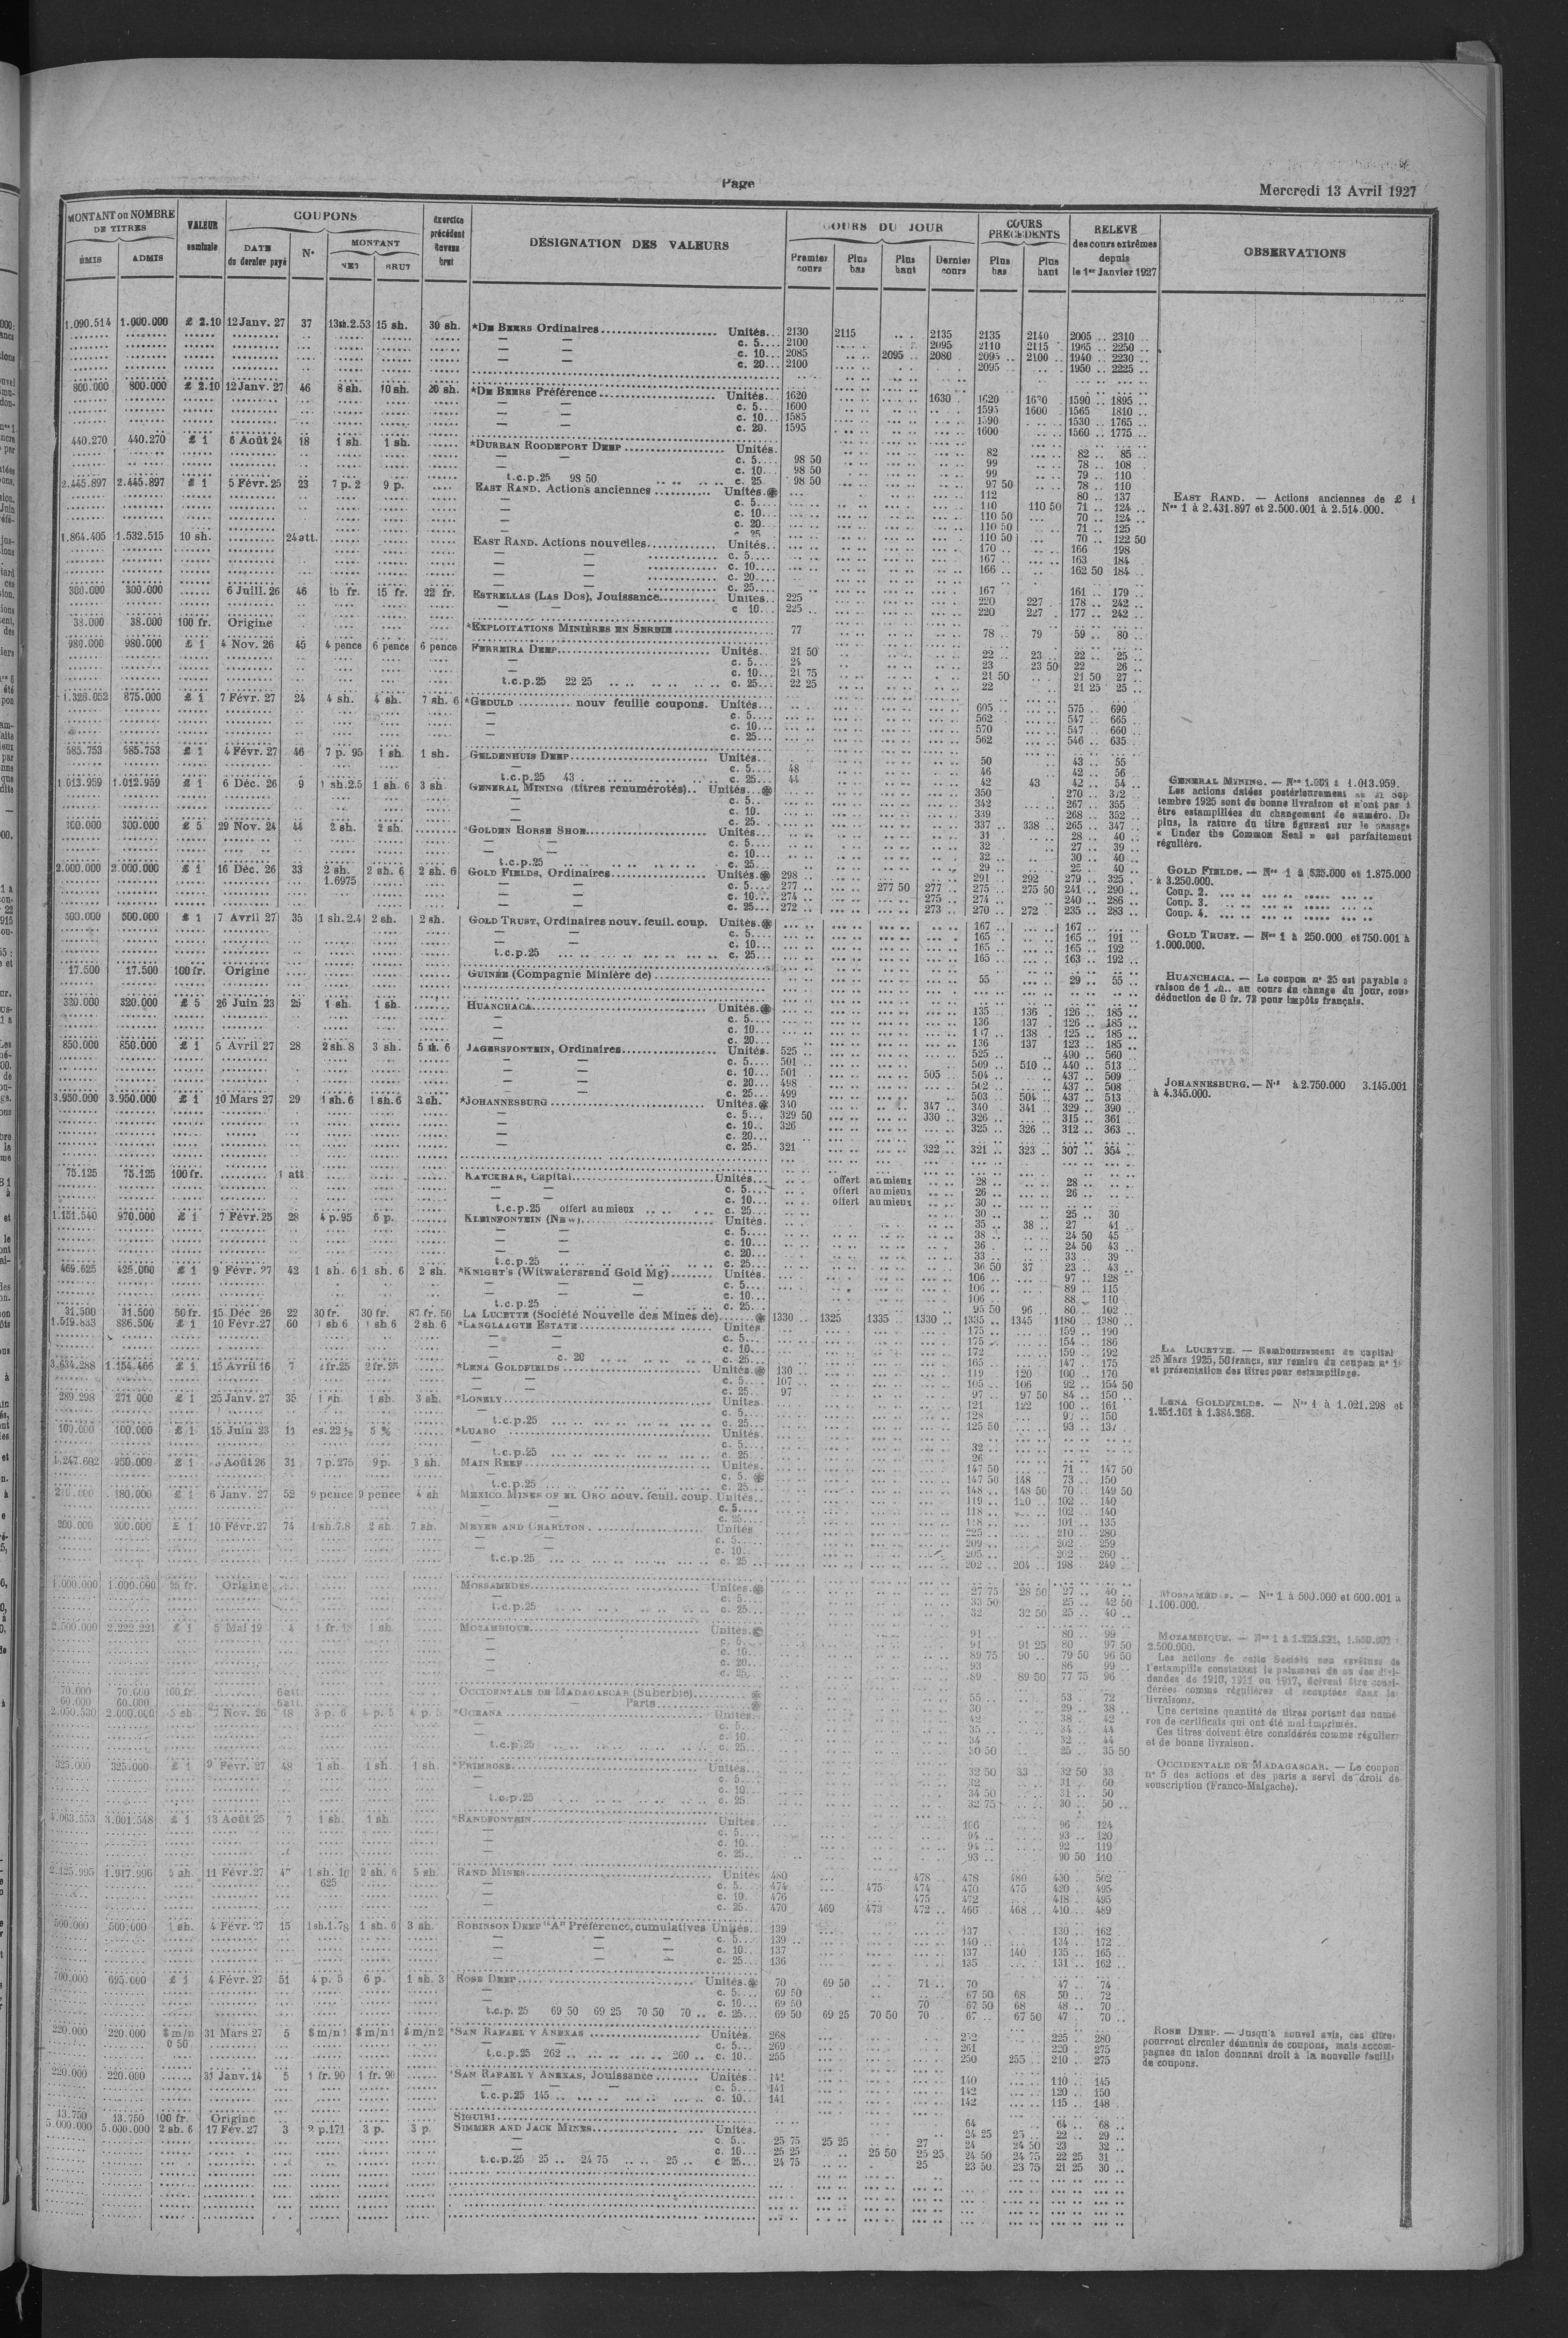 Page
Mercredi 13 Avril 1927
MONTANT ou NOMBRE DE TITRES
ÉMIS ADMIS
VALEUR nominale
COUPONS
DATE du dernier payé
N°
MONTANT
NET BRUT
Exercice précédent Revenu brut
DÉSIGNATION DES VALEURS
COURS DU JOUR
Premier cours Plus bas Plus haut Dernier cours
COURS PRÉCÉDENTS
Plus bas Plus haut
RELEVÉ des cours extrêmes depuis le 1er Janvier 1927
OBSERVATIONS
1.090.514 1.000.000 £ 2.10 12 Janv. 27 37 13sh.2.53 15 sh. 30 sh. *DE BEERS Ordinaires Unités 2130 2115 2135 2135 2140 2005 2310
c. 5 2100 2095 2110 2115 1965 2250
c. 10 2085 2095 2080 2095 2100 1940 2230
c. 20 2100 2095 1950 2225
800.000 800.000 £ 2.10 12 Janv. 27 46 8 sh. 10 sh. 20 sh. *DE BEERS Préférence Unités 1620 1630 1620 1630 1590 1895
c. 5 1600 1595 1600 1565 1810
c. 10 1585 1590 1530 1765
c. 20 1595 1600 1560 1775
440.270 440.270 £ 1 6 Août 24 18 1 sh. 1 sh. *DURBAN ROODEPORT DEEP Unités 82 82 85
c. 5 98 50 99 78 108
c. 10 98 50 99 79 110
t.c.p.25 98 50 c. 25 98 50 97 50 78 110
2.445.897 2.445.897 £ 1 5 Févr. 25 23 7 p. 2 9 p. EAST RAND. Actions anciennes Unités 112 80 137
c. 5 110 110 50 71 124
c. 10 110 50 70 124
c. 20 110 50 71 125
c. 25 110 50 70 122 50
1.864.405 1.532.515 10 sh. 24 att. EAST RAND. Actions nouvelles Unités 170 166 198
c. 5 167 163 184
c. 10 166 162 50 184
c. 20
c. 25 167 161 179
300.000 300.000 6 Juill. 26 46 15 fr. 15 fr. 22 fr. ESTRELLAS (LAS DOS), Jouissance Unités 225 220 227 178 242
c 10 225 220 227 177 242
38.000 38.000 100 fr. Origine *EXPLOITATIONS MINIÈRES EN SERBIE 77 78 79 59 80
980.000 980.000 £ 1 4 Nov. 26 45 4 pence 6 pence 6 pence FERREIRA DEEP Unités 21 50 22 23 22 25
c. 5 24 23 23 50 22 26
c. 10 21 75 21 50 21 50 27
t.c.p.25 22 25 c. 25 22 25 22 21 25 25
1.328.052 875.000 £ 1 7 Févr. 27 24 4 sh. 4 sh. 7 sh. 6 *GEDULD nouv feuille coupons. Unités 605 575 690
c. 5 562 547 665
c. 10 570 547 660
c. 25 562 546 635
585.753 585.753 £ 1 4 Févr. 27 46 7 p. 95 1 sh. 1 sh. GELDENHUIS DEEP Unités 50 43 55
c. 5 48 46 42 56
t.c.p.25 43 c. 25 44 42 43 42 54
1.013.959 1.012.959 £ 1 6 Déc. 26 9 1 sh.2.5 1 sh. 6 3 sh GENERAL MINING (titres renumérotés) Unités 350 270 372
c. 5 342 267 355
c. 10 339 268 352
c. 25 337 338 265 347
300.000 300.000 £ 5 29 Nov. 24 44 2 sh. 2 sh. *GOLDEN HORSE SHOE Unités 31 28 40
c. 5 32 27 39
c. 10 32 30 40
t.c.p.25 c. 25 29 25 40
2.000.000 2.000.000 £ 1 16 Déc. 26 33 2 sh. 1.6975 2 sh. 6 2 sh. 6 GOLD FIELDS, Ordinaires Unités 298 291 292 279 325
c. 5 277 277 50 277 275 275 50 241 290
c. 10 274 275 274 240 286
c. 25 272 273 270 272 235 283
500.000 500.000 £ 1 7 Avril 27 35 1 sh.2.4 2 sh. 2 sh. GOLD TRUST, Ordinaires nouv. feuil. coup. Unités 167 167
c. 5 165 165 191
c. 10 165 165 192
t.c.p.25 c. 25 165 163 192
17.500 17.500 100 fr. Origine GUINÉE (Compagnie Minière de) 55 29 55
320.000 320.000 £ 5 26 Juin 23 25 1 sh. 1 sh. HUANCHACA Unités 135 136 126 185
c. 5 136 137 126 185
c. 10 137 138 125 185
c. 20 136 137 123 185
850.000 850.000 £ 1 5 Avril 27 28 2 sh. 8 3 sh. 5 sh. 6 JAGERSFONTEIN, Ordinaires Unités 525 525 490 560
c. 5 501 509 510 440 513
c. 10 501 505 504 437 509
c. 20 498 502 437 508
c. 25 499 503 504 437 513
3.950.000 3.950.000 £ 1 10 Mars 27 29 1 sh. 6 1 sh. 6 3 sh. *JOHANNESBURG Unités 340 347 340 341 329 390
c. 5 329 50 330 326 315 361
c. 10 326 325 326 312 363
c. 20
c. 25 321 322 321 323 307 354
75.125 75.125 100 fr. 1 att KATCHKAR, Capital Unités offert au mieux 28 28
c. 5 offert au mieux 26 26
c. 10 offert au mieux 30
t.c.p.25 offert au mieux c. 25 30 25 30
1.151.540 970.000 £ 1 7 Févr. 25 28 4 p. 95 6 p. KLEINFONTEIN (New) Unités 35 38 27 41
c. 5 38 24 50 45
c. 10 36 24 50 43
c. 20 33 33 39
t.c.p.25 c. 25 36 50 37 23 43
469.625 425.000 £ 1 9 Févr. 27 42 1 sh. 6 1 sh. 6 2 sh. *KNIGHT'S (Witwatersrand Gold Mg) Unités 106 97 128
c. 5 106 89 115
c. 10 106 88 110
t.c.p.25 c. 25 95 50 96 80 102
31.500 31.500 50 fr. 15 Déc. 26 22 30 fr. 30 fr. 87 fr. 50 LA LUCETTE (Société Nouvelle des Mines de) 1330 1325 1335 1330 1335 1345 1180 1380
1.519.833 886.500 £ 1 10 Févr. 27 60 1 sh 6 1 sh 6 2 sh. 6 *LANGLAAGTE ESTATE Unités 175 159 190
c. 5 175 154 186
c. 10 172 159 192
c. 20 c. 25 165 147 175
3.634.288 1.154.466 £ 1 15 Avril 16 7 2 fr.25 2 fr.25 *LENA GOLDFIELDS Unités 130 119 120 100 170
c. 5 107 105 106 92 154 50
c. 25 97 97 97 50 84 150
289.298 271 000 £ 1 25 Janv. 27 35 1 sh. 1 sh. 3 sh. *LONELY Unités 121 122 100 161
c. 5 128 150
t.c.p.25 c. 25 125 50 93
100.000 100.000 £ 1 15 Juin 23 5 % *LUABO Unités
c. 5 32
t.c.p.25 c. 25 26
1.247.602 950.000 £ 1 Août 26 31 7 p.275 9 p. 3 sh. MAIN REEF Unités 147 50 71 147 50
c. 5 147 50 148 73 150
t.c.p.25 c. 25 148 148 50 70 149 50
180.000 £ 1 6 Janv. 27 52 9 pence 9 pence 4 sh MEXICO MINES OF EL ORO nouv. feuil. coup. Unités 119 120 102 140
c. 5 118 102 140
c. 25 118 101 135
200.000 200.000 £ 1 10 Févr. 27 74 1 sh.7.8 2 sh 7 sh. MEYER AND CHARLTON Unités 225 210 280
c. 5 209 202 259
c. 10 205 202 260
t.c.p.25 c. 25 202 204 198 249
1.000.000 1.000.000 25 fr. Origine MOSSAMEDES Unités 27 75 28 50 27 40
c. 5 33 50 25 42 50
t.c.p.25 c. 25 32 32 50 25 40
2.500.000 2.222.221 £ 1 5 Mai 19 4 1 sh MOZAMBIQUE Unités 91 80 99
c. 5 91 91 25 80 97 50
c. 10 89 75 90 79 50 96 50
c. 20 93 86 99
c. 25 89 89 50 77 75 96
70.000 70.000 100 fr. 6 att OCCIDENTALE DE MADAGASCAR (Suberbie) 55 53 72
60.000 60.000 6 att. Parts 30 29 38
2.050.530 2.000.000 5 sh 27 Nov. 26 18 3 p. 6 4 p. 5 4 p. 5 *OCEANA Unités 42 38 42
c. 5 35 34 44
c. 10 34 32 44
t.c.p.25 c. 25 30 50 25 35 50
325.000 325.000 £ 1 9 Févr. 27 48 1 sh. 1 sh. 1 sh. *PRIMROSE Unités 32 50 33 32 50 33
c. 5 32 31 60
c. 10 34 50 31 50
t.c.p.25 c. 25 32 75 30 50
4.063.553 3.001.548 £ 1 13 Août 25 7 1 sh. 1 sh *RANDFONTEIN Unités 106 96 124
c. 5 94 93 120
c. 10 94 92 119
c. 25 93 90 50 110
2.125.995 1.917.996 5 sh. 11 Févr. 27 1 sh. 10 625 2 sh. 6 5 sh RAND MINES Unités 480 478 478 480 430 502
c. 5 474 475 474 470 475 420 495
c. 10 476 475 472 418 495
c. 25 470 469 473 472 466 468 410 489
500.000 500.000 1 sh. 4 Févr. 27 15 1 sh.1.78 1 sh. 6 3 sh. ROBINSON DEEP "A" Préférence, cumulatives Unités 139 137 130 162
c. 5 139 140 134 172
c. 10 137 137 140 135 165
c. 25 136 135 131 162
700.000 695.000 £ 1 4 Févr. 27 51 4 p. 5 6 p. 1 sh. 3 ROSE DEEP Unités 70 69 50 71 70 47 74
c. 5 69 50 67 50 68 50 72
c. 10 69 50 70 67 50 68 48 70
t.c.p. 25 69 50 69 25 70 50 70 c. 25 69 50 69 25 70 50 70 67 67 50 47 70
220.000 220.000 $ m/n 0 50 31 Mars 27 5 $ m/n 1 $ m/n 1 $ m/n 2 *SAN RAFAEL Y ANEXAS Unités 268 225 280
c. 5 269 261 220 275
t.c.p.25 262 260 c. 10 255 250 255 210 275
220.000 220.000 31 Janv. 14 5 1 fr. 90 1 fr. 90 *SAN RAFAEL Y ANEXAS, Jouissance Unités 141 140 110 145
c. 5 141 142 120 150
t.c.p.25 145 c. 10 141 142 115 148
13.750 13.750 100 fr. Origine SIGUIRI 64 64 68
5.000.000 5.000.000 2 sh. 6 17 Fév. 27 3 2 p.171 3 p. 3 p. SIMMER AND JACK MINES Unités 24 25 25 22 29
c. 5 25 75 25 25 27 24 24 50 23 32
c. 10 25 25 25 50 25 25 24 50 24 75 22 25 31
t.c.p.25 25 24 75 25 c 25 24 75 25 23 50 23 75 21 25 30
EAST RAND. — Actions anciennes de £ 1
Nos 1 à 2.431.897 et 2.500.001 à 2.514.000.
GENERAL MINING. — Nos 1.001 à 1.013.959.
Les actions datées postérieurement au 21 Sep
tembre 1925 sont de bonne livraison et n'ont pas à
être estampillées du changement de numéro. De
plus, la rature du titre figurant sur le passage
« Under the Common Seal » est parfaitement
régulière.
GOLD FIELDS. — Nos 1 à 525.000 et 1.875.000
à 3.250.000.
Coup. 2.
Coup. 3.
Coup. 4.
GOLD TRUST. — Nos 1 à 250.000 et 750.001 à
1.000.000.
HUANCHACA. — Le coupon n° 25 est payable à
raison de 1 sh. au cours du change du jour, sous
déduction de 0 fr. 73 pour impôts français.
JOHANNESBURG. — Nos à 2.750.000 3.145.001
à 4.345.000.
LA LUCETTE. — Remboursement de capital
25 Mars 1925, 50 francs, sur remise du coupon n° 19
et présentation des titres pour estampillage.
LENA GOLDFIELDS. — Nos 1 à 1.021.298 et
1.251.161 à 1.384.268.
MOSSAMEDES. — Nos 1 à 500.000 et 600.001 à
1.100.000.
MOZAMBIQUE. — Nos 1 à
2.500.000.
Les actions de cette Société non revêtues de
l'estampille constatant le paiement de un des divi-
dendes de 1910, 1911 ou 1917, doivent être consi-
dérées comme régulières et acceptées dans les
livraisons.
Une certaine quantité de titres portent des numé
ros de certificats qui ont été mal imprimés.
Ces titres doivent être considérés comme réguliers
et de bonne livraison.
OCCIDENTALE DE MADAGASCAR. — Le coupon
n° 5 des actions et des parts a servi de droit de
souscription (Franco-Malgache).
ROSE DEEP. — Jusqu'à nouvel avis, ces titres
pourront circuler démunis de coupons, mais accom-
pagnés du talon donnant droit à la nouvelle feuille
de coupons.